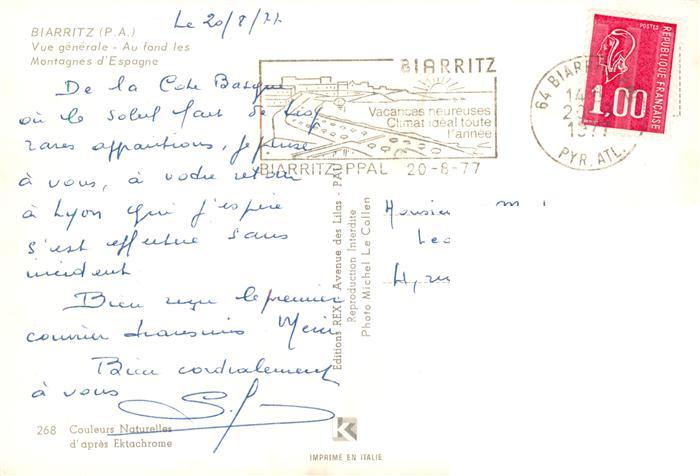 BIARRITZ (P.A.)
Vue générale - Au fond les
Montagnes d'Espagne
Le 20/8/77
De la Cote Basque
où le soleil fait de très
rares apparitions, je pense
à vous, à votre retour
à Lyon que j'espère
s'est effectué sans
incident
Bien reçu le premier
courrier transmis Merci
Bien cordialement
à vous
268 Couleurs Naturelles
d'après Ektachrome
BIARRITZ
Vacances heureuses
Climat idéal toute
l'année
BIARRITZ PPAL 20-8-77
64 BIARR
PYR. ATL.
POSTES
1,00
REPUBLIQUE FRANÇAISE
Editions REX Avenue des Lilas - PAU
Reproduction Interdite
Photo Michel Le Collen
Monsieur
K
IMPRIMÉ EN ITALIE